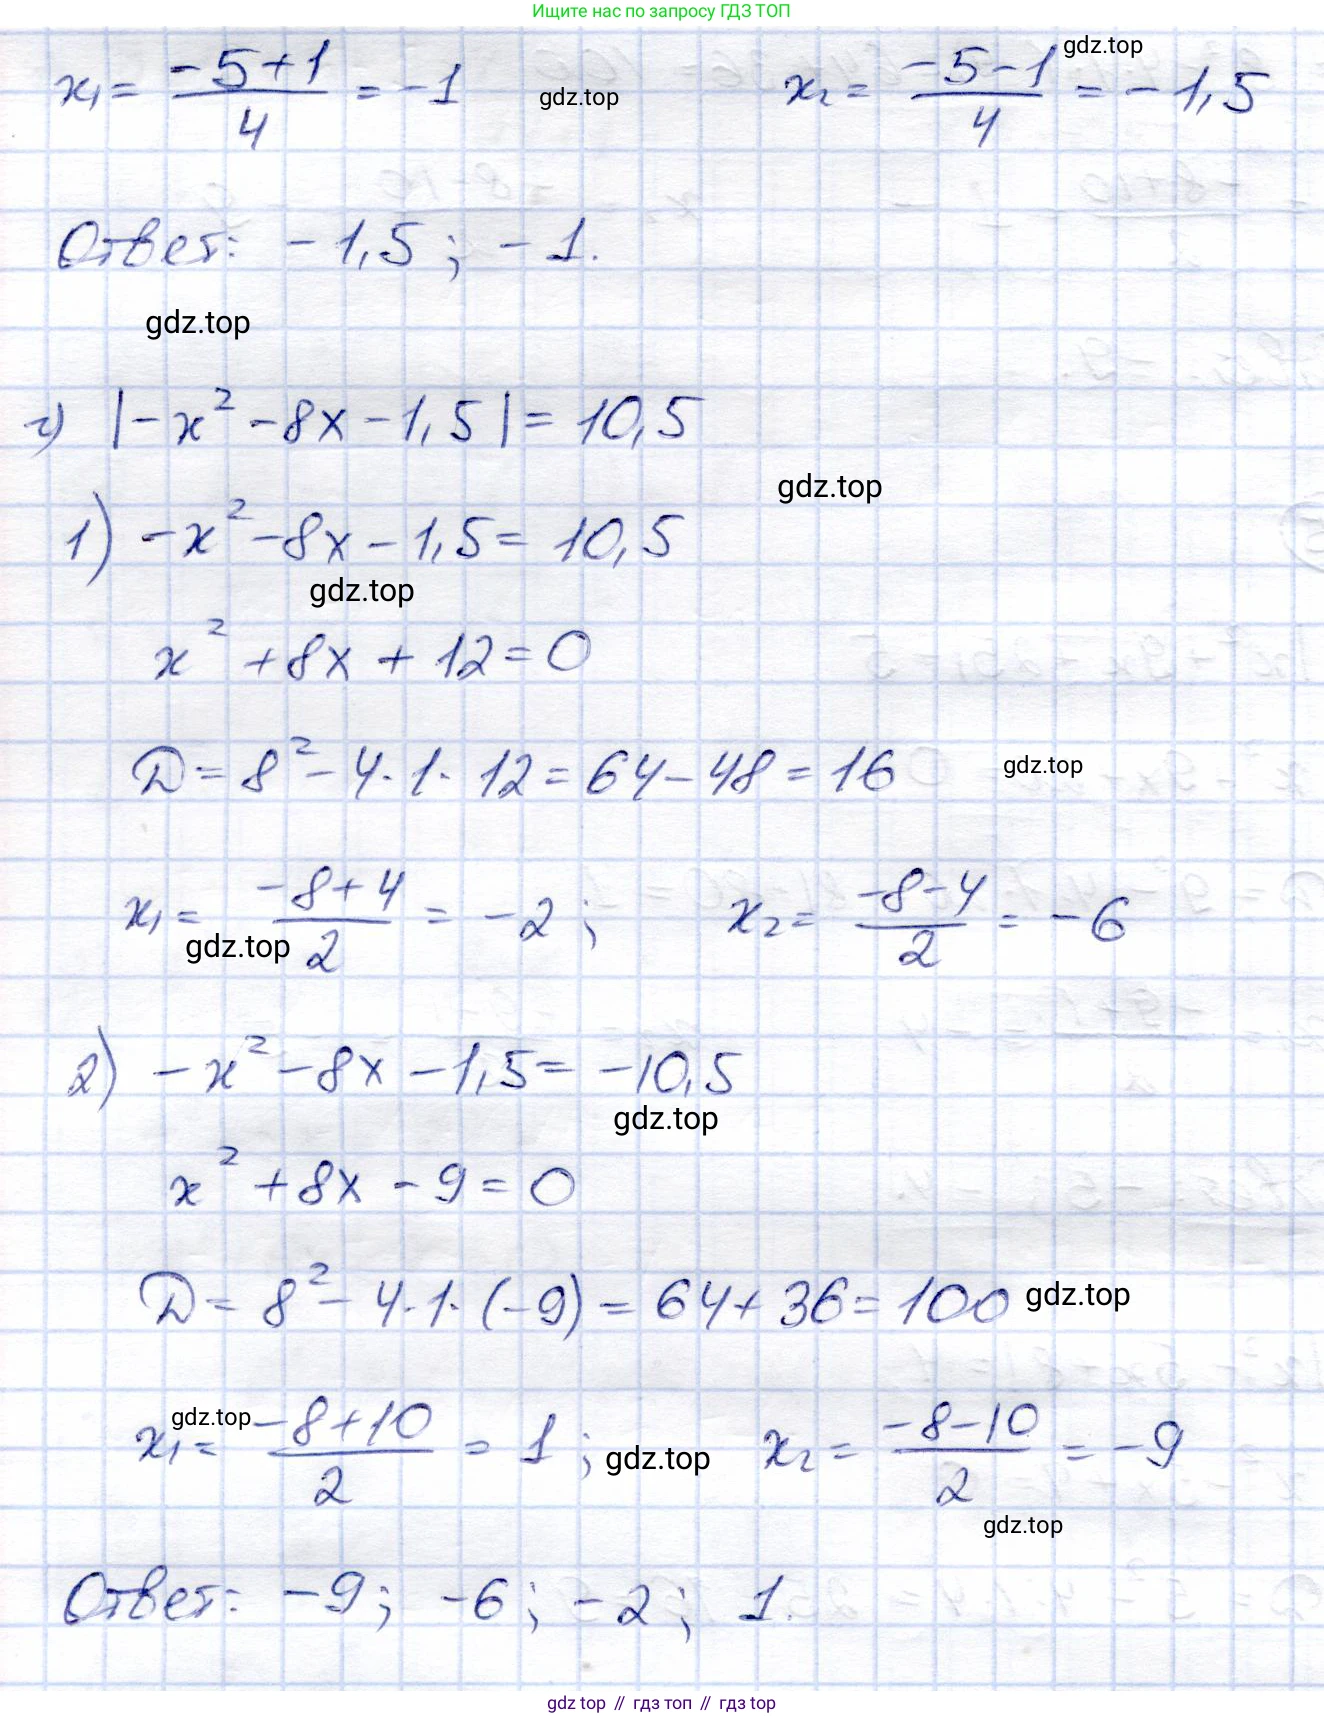 Ищите нас по запросу ГДЗ ТОП
x₁ = (-5+1)/4 = -1 gdz.top x₂ = (-5-1)/4 = -1,5 gdz.top
Ответ: -1,5; -1.
gdz.top
г) |-x² - 8x - 1,5| = 10,5
gdz.top
1) -x² - 8x - 1,5 = 10,5
gdz.top
x² + 8x + 12 = 0
D = 8² - 4·1·12 = 64 - 48 = 16 gdz.top
x₁ = (-8+4)/2 = -2; x₂ = (-8-4)/2 = -6
gdz.top
2) -x² - 8x - 1,5 = -10,5
gdz.top
x² + 8x - 9 = 0
D = 8² - 4·1·(-9) = 64 + 36 = 100 gdz.top
gdz.top
x₁ = (-8+10)/2 = 1; gdz.top x₂ = (-8-10)/2 = -9
gdz.top
Ответ: -9; -6; -2; 1.
gdz top // гдз топ // гдз top